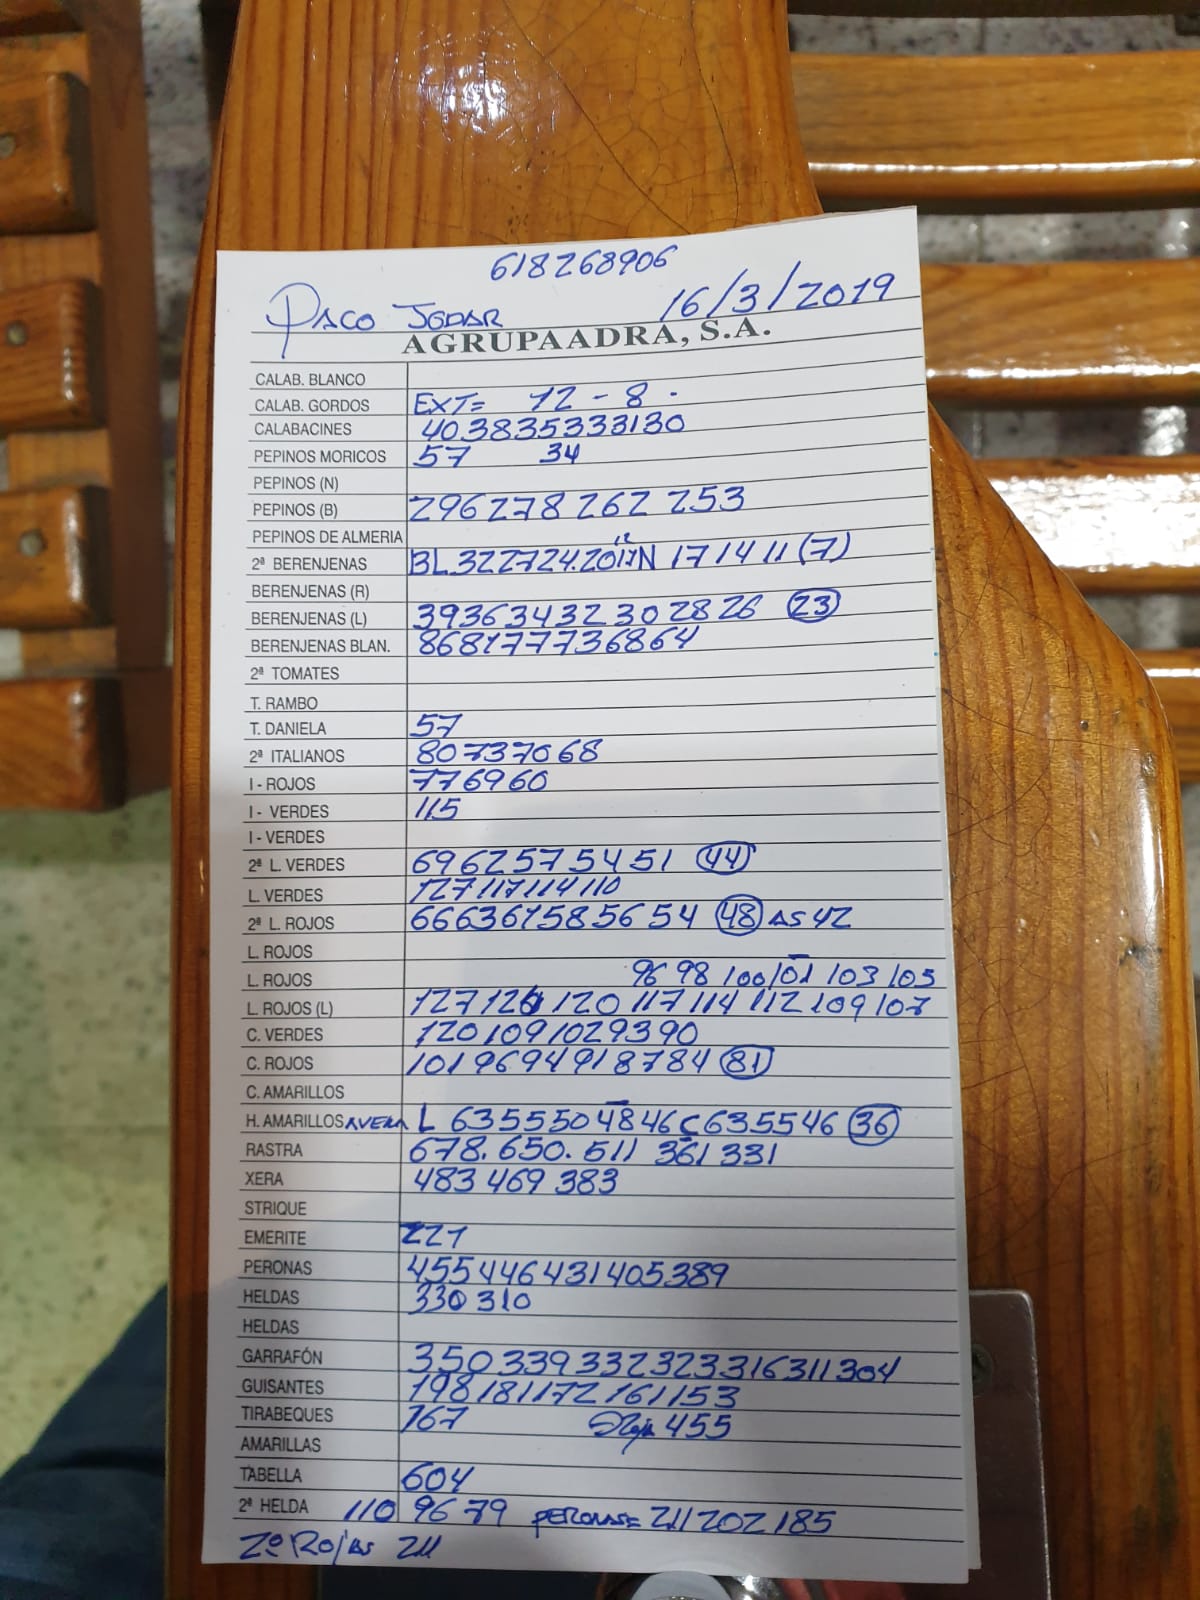 618268906
PACO JGDAR 16/3/2019
AGRUPAADRA, S.A.
CALAB. BLANCO
CALAB. GORDOS EXT= 12 - 8 .
CALABACINES 40.3835333130
PEPINOS MORICOS 57 34
PEPINOS (N)
PEPINOS (B) 296 278 262 253
PEPINOS DE ALMERIA
2ª BERENJENAS BL.322724.20 N 17 14 11 (7)
BERENJENAS (R)
BERENJENAS (L) 39363432 30 28 26 23
BERENJENAS BLAN. 868177736864
2ª TOMATES
T. RAMBO
T. DANIELA 57
2ª ITALIANOS 80737068
I - ROJOS 776960
I - VERDES 115
I - VERDES
2ª L. VERDES 6962575451 44
L. VERDES 127117114110
2ª L. ROJOS 666361585654 48 AS 42
L. ROJOS
L. ROJOS 96 98 100 101 103 105
L. ROJOS (L) 127 120 117 114 112 109 107
C. VERDES 1201091029390
C. ROJOS 1019694918784 81
C. AMARILLOS
H. AMARILLOS L 6355504846 C635546 36
RASTRA 678. 650. 511 361 331
XERA 483 469 383
STRIQUE
EMERITE 221
PERONAS 455446431405389
HELDAS 330 310
HELDAS
GARRAFÓN 350339332323316311304
GUISANTES 198181172161153
TIRABEQUES 167 Roja 455
AMARILLAS
TABELLA 604
2ª HELDA 110 96 79 PERONAS= 211 202 185
2º Rojas 211